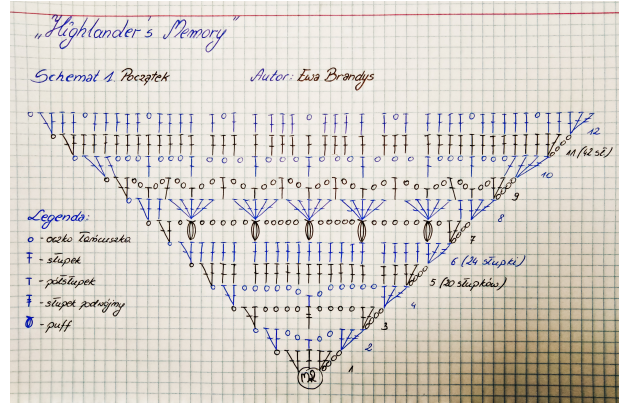 „Highlander's Memory"
Schemat 1. Początek
Autor: Ewa Brandys
12
11 (42 sł)
10
9
8
7
6 (24 słupki)
5 (20 słupków)
4
3
2
1
Legenda:
- oczko łańcuszka
- słupek
- półsłupek
- słupek podwójny
- puff